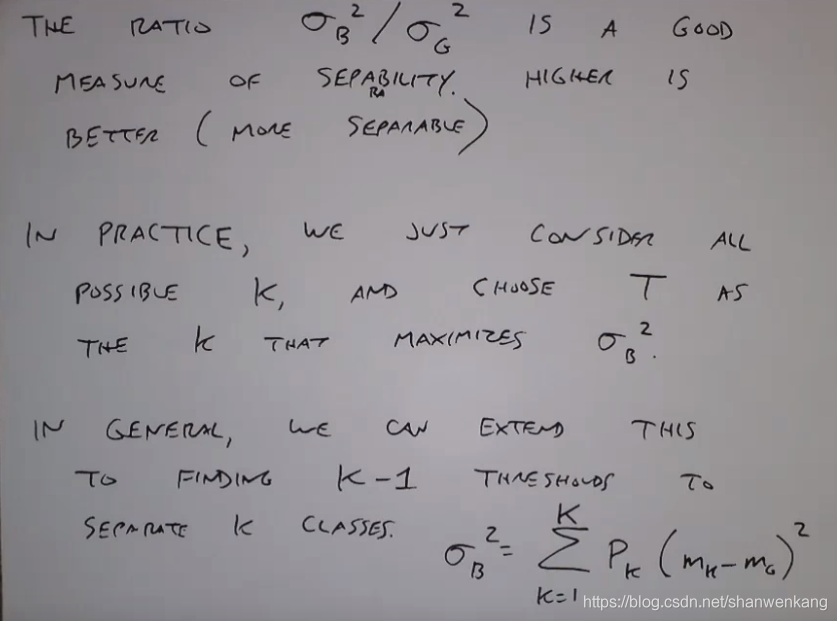 THE RATIO σ_B²/σ_G² IS A GOOD
MEASURE OF SEPARABILITY. HIGHER IS
BETTER (MORE SEPARABLE)
IN PRACTICE, WE JUST CONSIDER ALL
POSSIBLE K, AND CHOOSE T AS
THE K THAT MAXIMIZES σ_B².
IN GENERAL, WE CAN EXTEND THIS
TO FINDING K-1 THRESHOLDS TO
SEPARATE K CLASSES.
σ_B² = Σ_{K=1}^{K} P_K (m_K - m_G)²
https://blog.csdn.net/shanwenkang